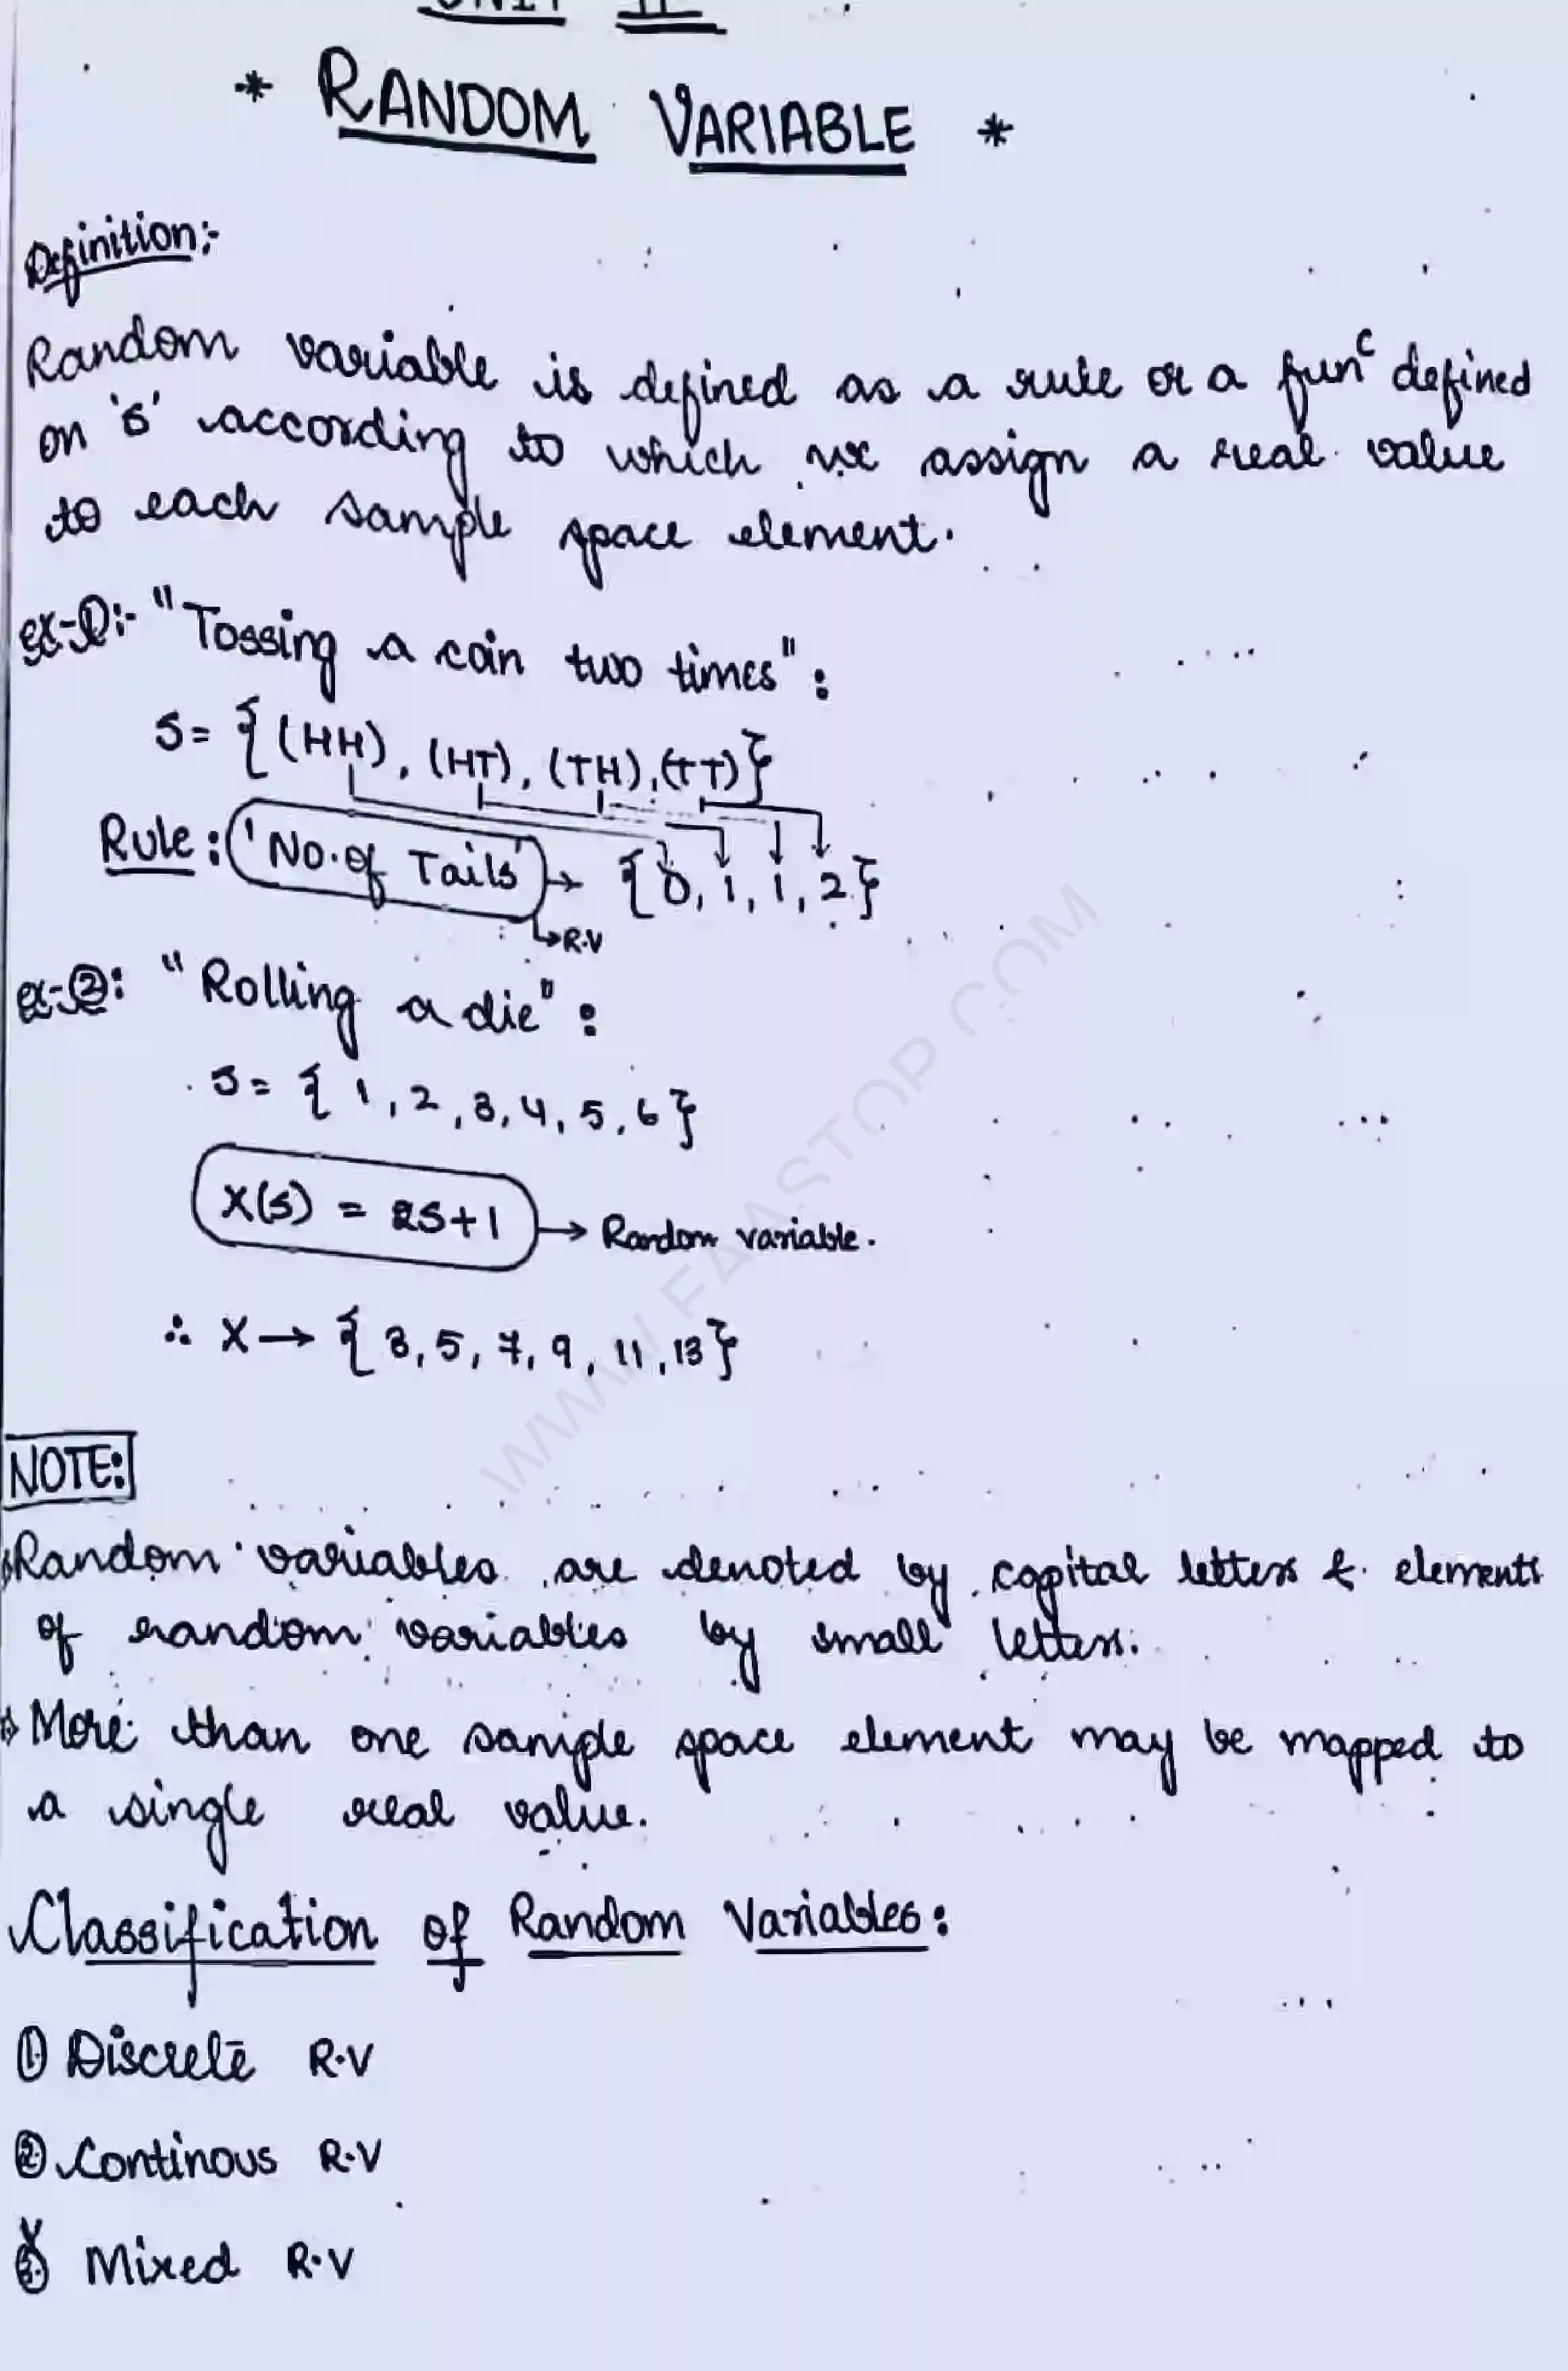 UNIT II
* RANDOM VARIABLE *
Definition:-
Random variable is defined as a rule or a funᶜ defined
on 'S' according to which we assign a real value
to each sample space element.
ex-①:- "Tossing a coin two times":
S= {(HH), (HT), (TH),(TT)}
Rule: 'No. of Tails' → {0, 1, 1, 2}
↳R.V
ex-②: "Rolling a die":
S= {1, 2, 3, 4, 5, 6}
X(S) = 2S+1 → Random variable.
∴ X → {3, 5, 7, 9, 11, 13}
NOTE:
Random variables are denoted by capital letters & elements
of random variables by small letters.
More than one sample space element may be mapped to
a single real value.
Classification of Random Variables:
① Discrete R.V
② Continous R.V
③ Mixed R.V
WWW.FAASTOP.COM